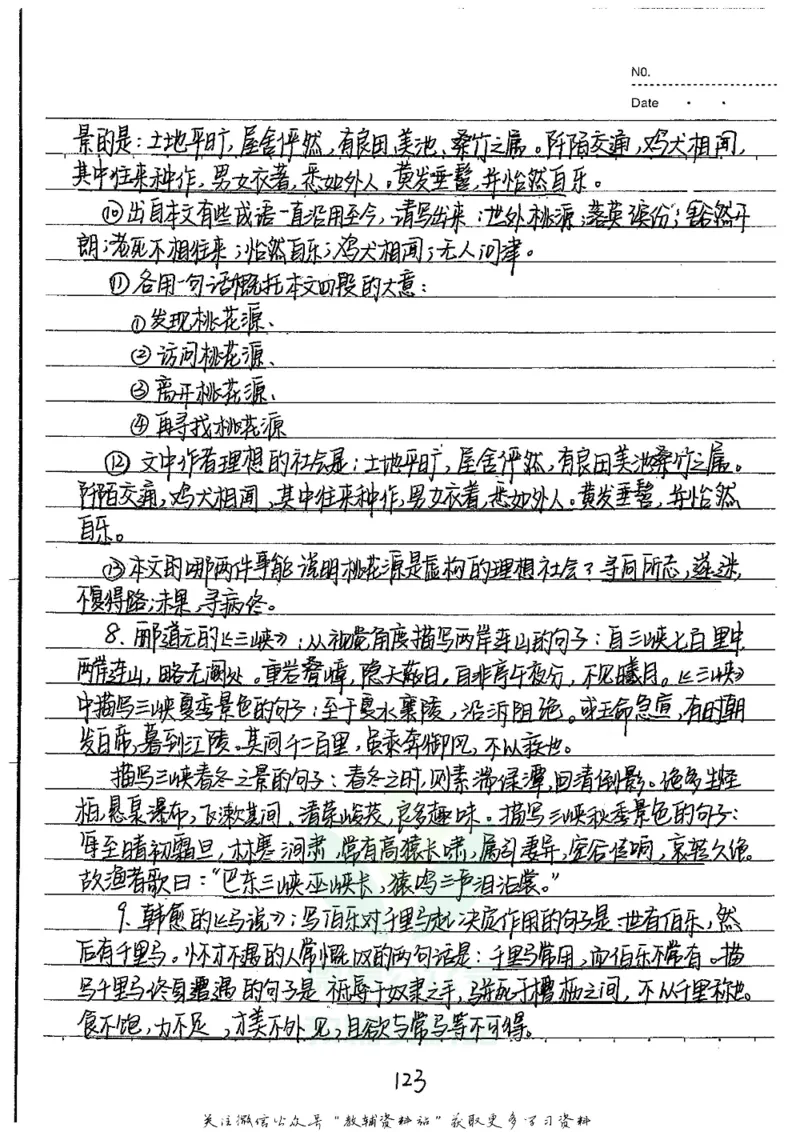 NO.
Date
景的是：土地平旷，屋舍俨然，有良田、美池、桑竹之属。阡陌交通，鸡犬相闻，
其中往来种作，男女衣著，悉如外人。黄发垂髫，并怡然自乐。
⑩出自本文有些成语一直沿用至今，请写出来：世外桃源；落英缤纷；豁然开
朗；老死不相往来；怡然自乐；鸡犬相闻；无人问津。
⑪各用一句话概括本文四段的大意：
①发现桃花源、
②访问桃花源、
③离开桃花源、
④再寻找桃花源
⑫文中作者理想的社会是：土地平旷，屋舍俨然，有良田美池桑竹之属。
阡陌交通，鸡犬相闻，其中往来种作，男女衣著，悉如外人。黄发垂髫，并怡然
自乐。
⑬本文的哪两件事能说明桃花源是虚构的理想社会？寻向所志，遂迷，
不复得路；未果，寻病终。
8.郦道元的《三峡》：从视觉角度描写两岸连山的句子：自三峡七百里中，
两岸连山，略无阙处。重岩叠嶂，隐天蔽日，自非亭午夜分，不见曦月。《三峡》
中描写三峡夏季景色的句子：至于夏水襄陵，沿溯阻绝。或王命急宣，有时朝
发白帝，暮到江陵。其间千二百里，虽乘奔御风，不以疾也。
描写三峡春冬之景的句子：春冬之时，则素湍绿潭，回清倒影。绝多生怪
柏，悬泉瀑布，飞漱其间，清荣峻茂，良多趣味。描写三峡秋季景色的句子：
每至晴初霜旦，林寒涧肃，常有高猿长啸，属引凄异，空谷传响，哀转久绝。
故渔者歌曰：“巴东三峡巫峡长，猿鸣三声泪沾裳。”
9.韩愈的《马说》：写伯乐对千里马起决定作用的句子是世有伯乐，然
后有千里马。怀才不遇的人常慨叹的两句话是：千里马常有，而伯乐不常有。描
写千里马终身遭遇的句子是祗辱于奴隶人之手，骈死于槽枥之间，不以千里称也。
食不饱，力不足，才美不外见，且欲与常马等不可得。
123
关注微信公众号“教辅资料站”获取更多学习资料